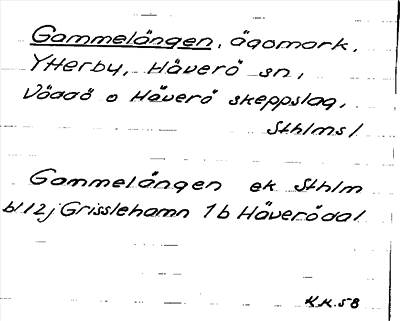 Gammelängen, ägomark,
Ytterby, Häverö sn,
Väddö o Häverö skeppslag,
Sthlms l
Gammelängen ek Sthlm
bl 12j Grisslehamn 1b Häverödal
K.K. 58